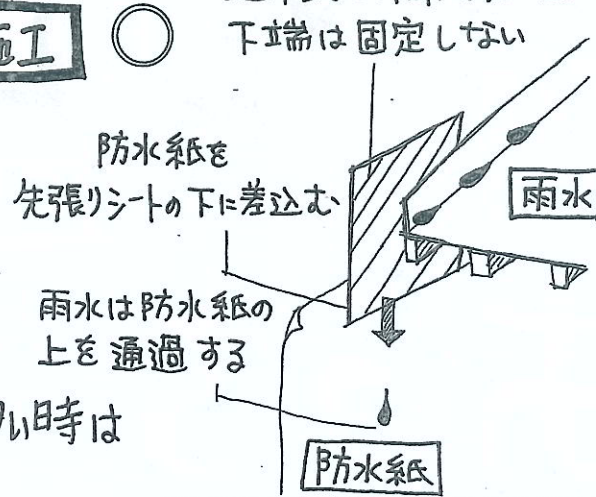 施工
下端は固定しない
防水紙を
先張りシートの下に差込む
雨水
雨水は防水紙の
上を通過する
い時は
防水紙